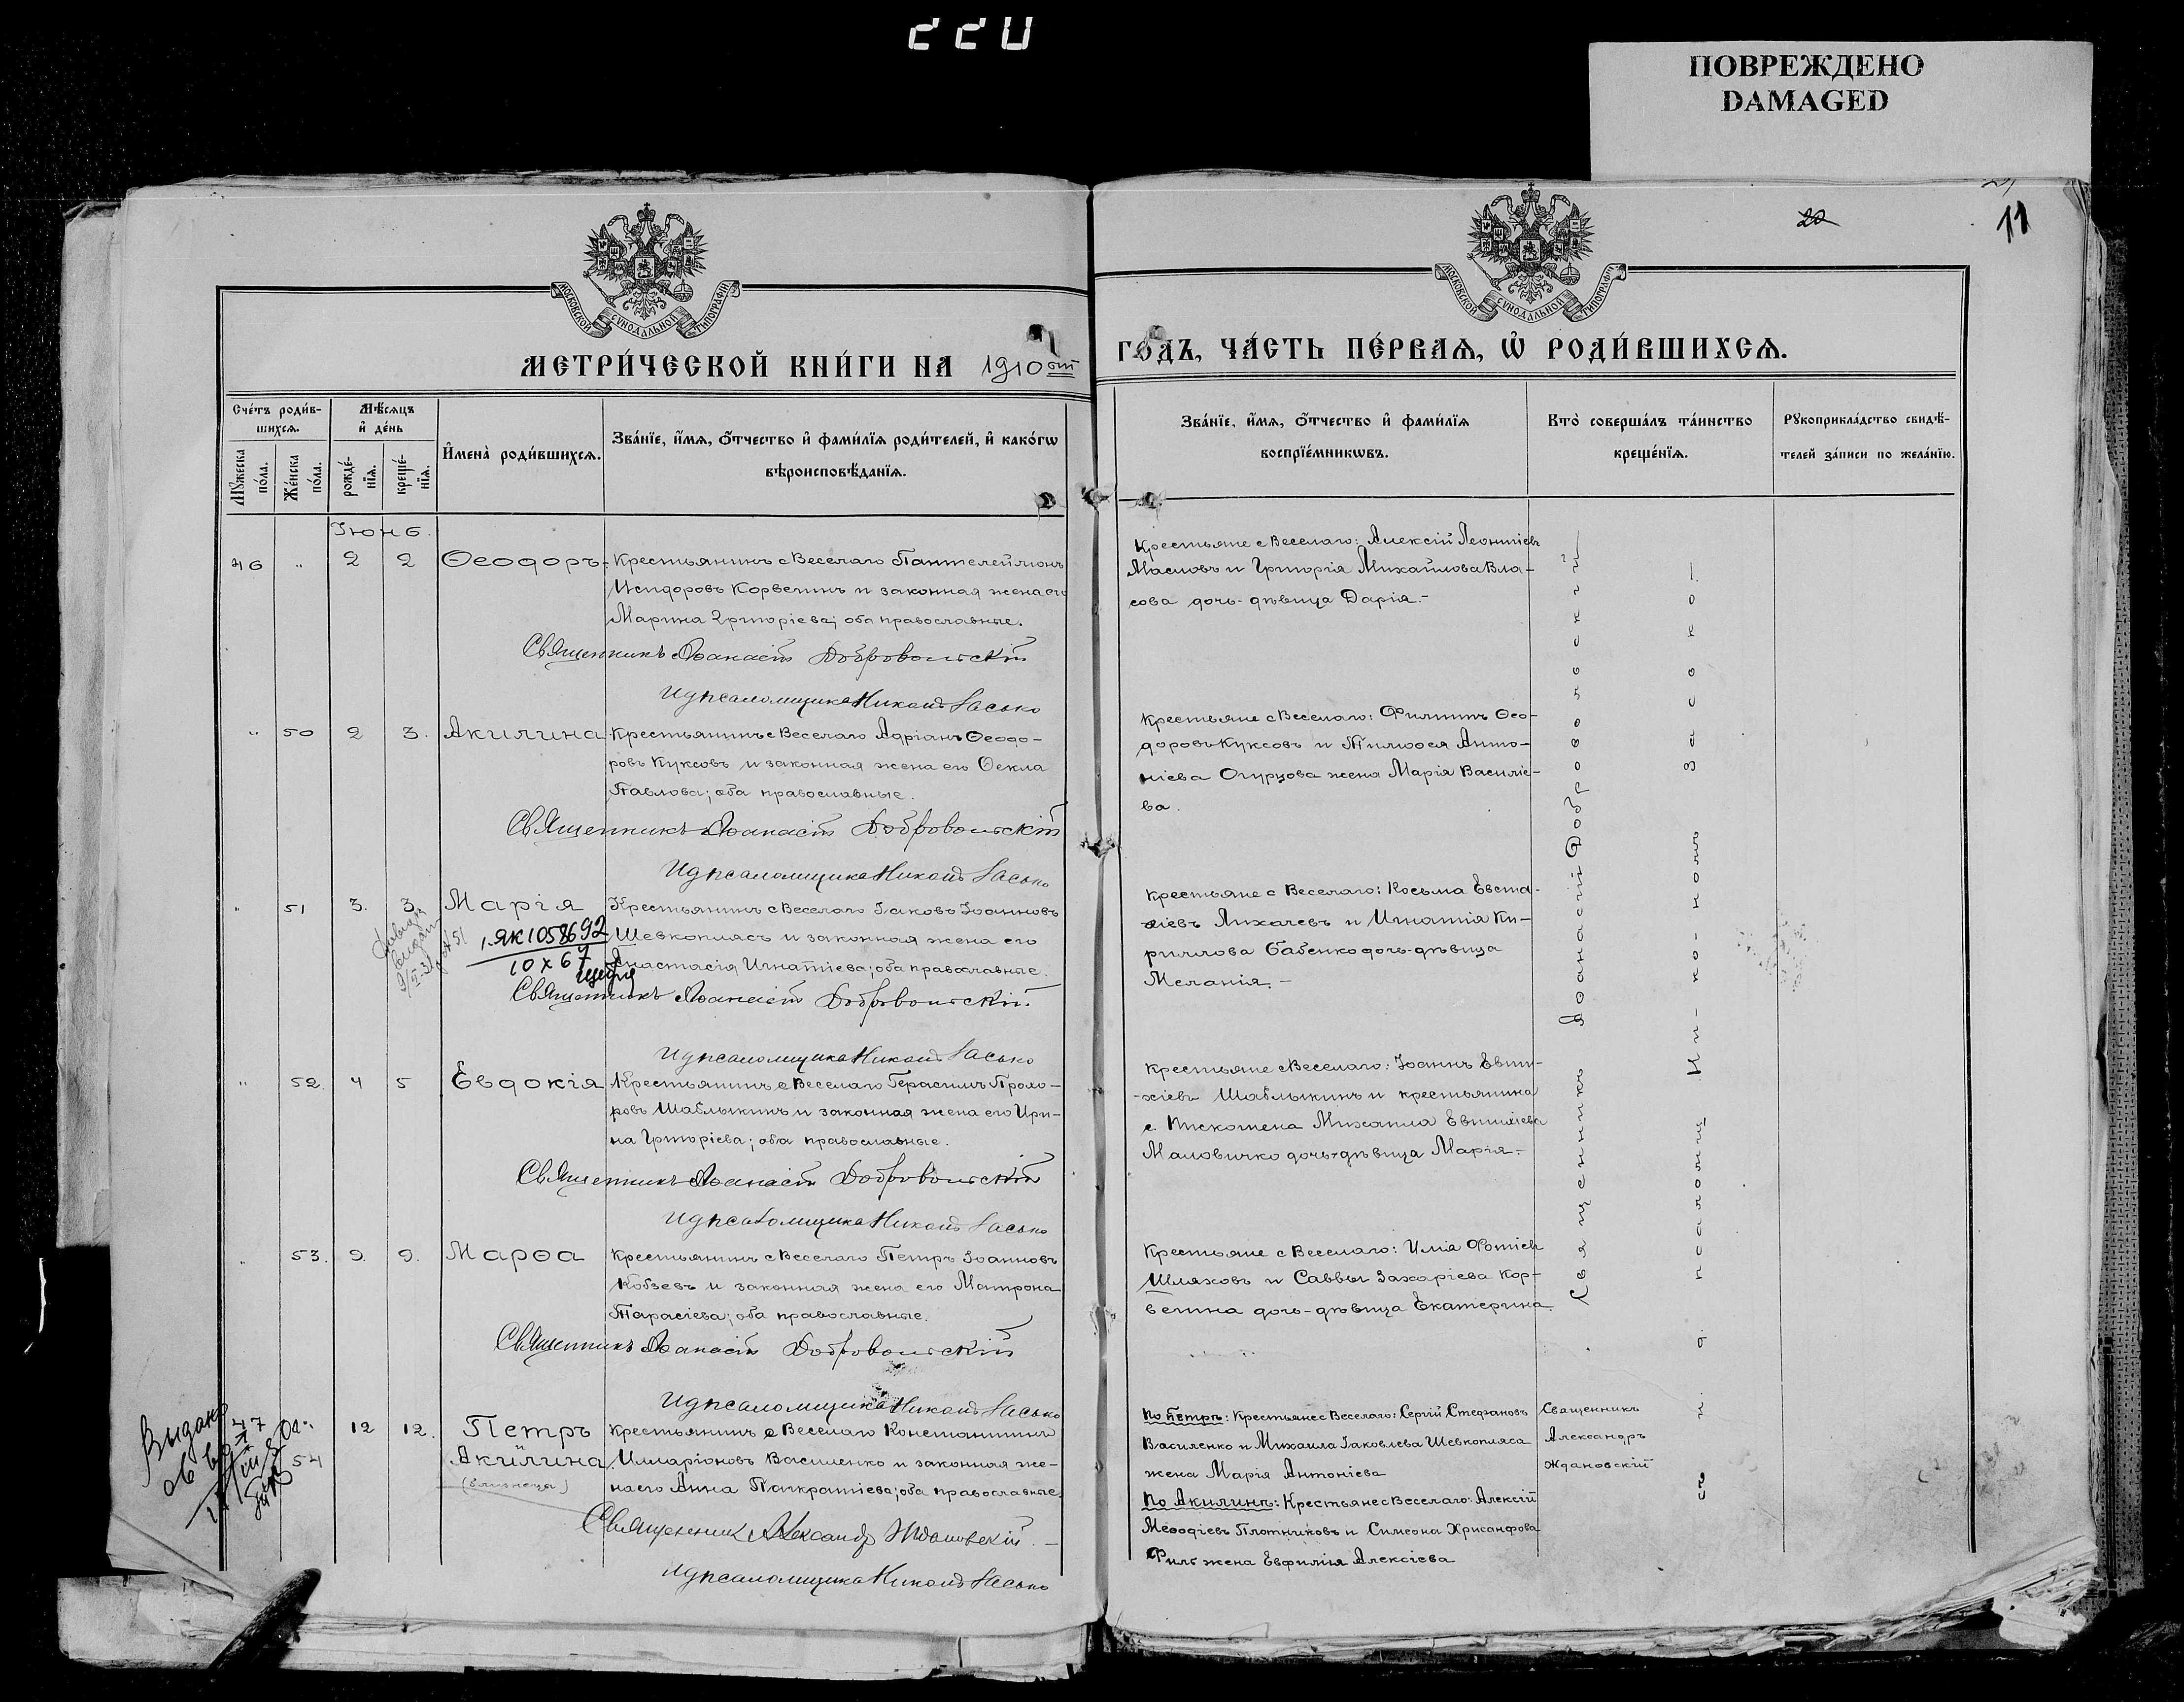 220
ПОВРЕЖДЕНО
DAMAGED
20
11
МОСКОВСКОЙ СѴНОДАЛЬНОЙ ТИПОГРАФІИ
МОСКОВСКОЙ СѴНОДАЛЬНОЙ ТИПОГРАФІИ
МЕТРИ́ЧЕСКОЙ КНИ́ГИ НА 1910ый
ГОДЪ, ЧА́СТЬ ПЕ́РВАѦ, Ѡ҆ РОДИ́ВШИХСѦ.
Сче́тъ роди́в-
шихсѧ.
Мѣ́сѧцъ
и҆ де́нь
Мꙋ́жеска
по́ла.
Же́нска
по́ла.
рожде́-
нїѧ.
креще́-
нїѧ.
И҆мена̀ роди́вшихсѧ.
Зва́нїе, и҆́мѧ, ѻ҆́тчество и҆ фами́лїѧ роди́телей, и҆ како́гѡ
вѣроисповѣ́данїѧ.
Зва́нїе, и҆́мѧ, ѻ҆́тчество и҆ фами́лїѧ
воспрїе́мникѡвъ.
Кто̀ соверша́лъ та́инство
креще́нїѧ.
Рꙋкоприкла́дство свидѣ́-
телей за́писи по жела́нїю.
Іюнь.
46 " 2 2 Ѳеодоръ.
Крестьянинъ с Веселаго Пантелеймонъ
Исидоровъ Корвегинъ и законная жена его
Марина Григоріева; оба православные.
Священникъ Аѳанасій Добровольскій
И д псаломщика Никонъ Засько
Крестьяне с Веселаго: Алексій Леонтіевъ
Масловъ и Григорія Михайлова Вла-
сова дочь-дѣвица Дарія.-
" 50 2 3. Акилина
Крестьянинъ с Веселаго Адріанъ Ѳеодо-
ровъ Куксовъ и законная жена его Ѳекла
Павлова; оба православные.
Священникъ Аѳанасій Добровольскій
И д псаломщика Никонъ Засько
Крестьяне с Веселаго: Филиппъ Ѳео-
доровъ Куксовъ и Тимоѳея Анто-
ніева Огурцова жена Марія Василіе-
ва.
" 51 3. 3. Марія
1. ЯК 1058692
10 х 67
Крестьянинъ с Веселаго Іаковъ Іоанновъ
Шевкоплясъ и законная жена его
Анастасія Игнатіева; оба православные.
Священникъ Аѳанасій Добровольскій.
И д псаломщика Никонъ Засько
Крестьяне с Веселаго: Косьма Евста-
ѳіевъ Лихачевъ и Игнатія Ки-
риллова Бабенко дочь-дѣвица
Меланія.-
" 52. 4 5 Евдокія
Крестьянинъ с Веселаго Герасимъ Прохо-
ровъ Шаблыкинъ и законная жена его Ири-
на Григоріева; оба православные.
Священникъ Аѳанасій Добровольскій
И д псаломщика Никонъ Засько
Крестьяне с Веселаго: Іоаннъ Евти-
-хіевъ Шаблыкинъ и крестьянина
с. Михаила Евтихіева
Маловичко дочь-дѣвица Марія.-
" 53. 9. 9. Марѳа
Крестьянинъ с Веселаго Петръ Іоанновъ
Кобзевъ и законная жена его Матрона
Тарасіева; оба православные.
Священникъ Аѳанасій Добровольскій
И д псаломщика Никонъ Засько
Крестьяне с Веселаго: Илія Фотіевъ
Шляховъ и Саввы Захаріева Кор-
вегина дочь-дѣвица Екатерина.
Священникъ Аѳанасій Добровольскій
И. д. псаломщ. Ни-ко-нонъ За с ь ко.
12 12. Петръ
54 Акилина
(близнецы)
Крестьянинъ с Веселаго Константинъ
Илларіоновъ Василенко и законная же-
на его Анна Панкратіева; оба православные.
Священник Александр Ждановскій.-
И д псаломщика Никонъ Засько
По Петрѣ: Крестьяне с Веселаго: Сергій Стефановъ
Василенко и Михаила Іаковлева Шевкопляса
жена Марія Антоніева
По Акилинѣ: Крестьяне с Веселаго: Алексій
Меѳодіевъ Плотниковъ и Симеона Хрисанфова
Филь жена Евфимія Алексіева
Священникъ
Александръ
Ждановскій